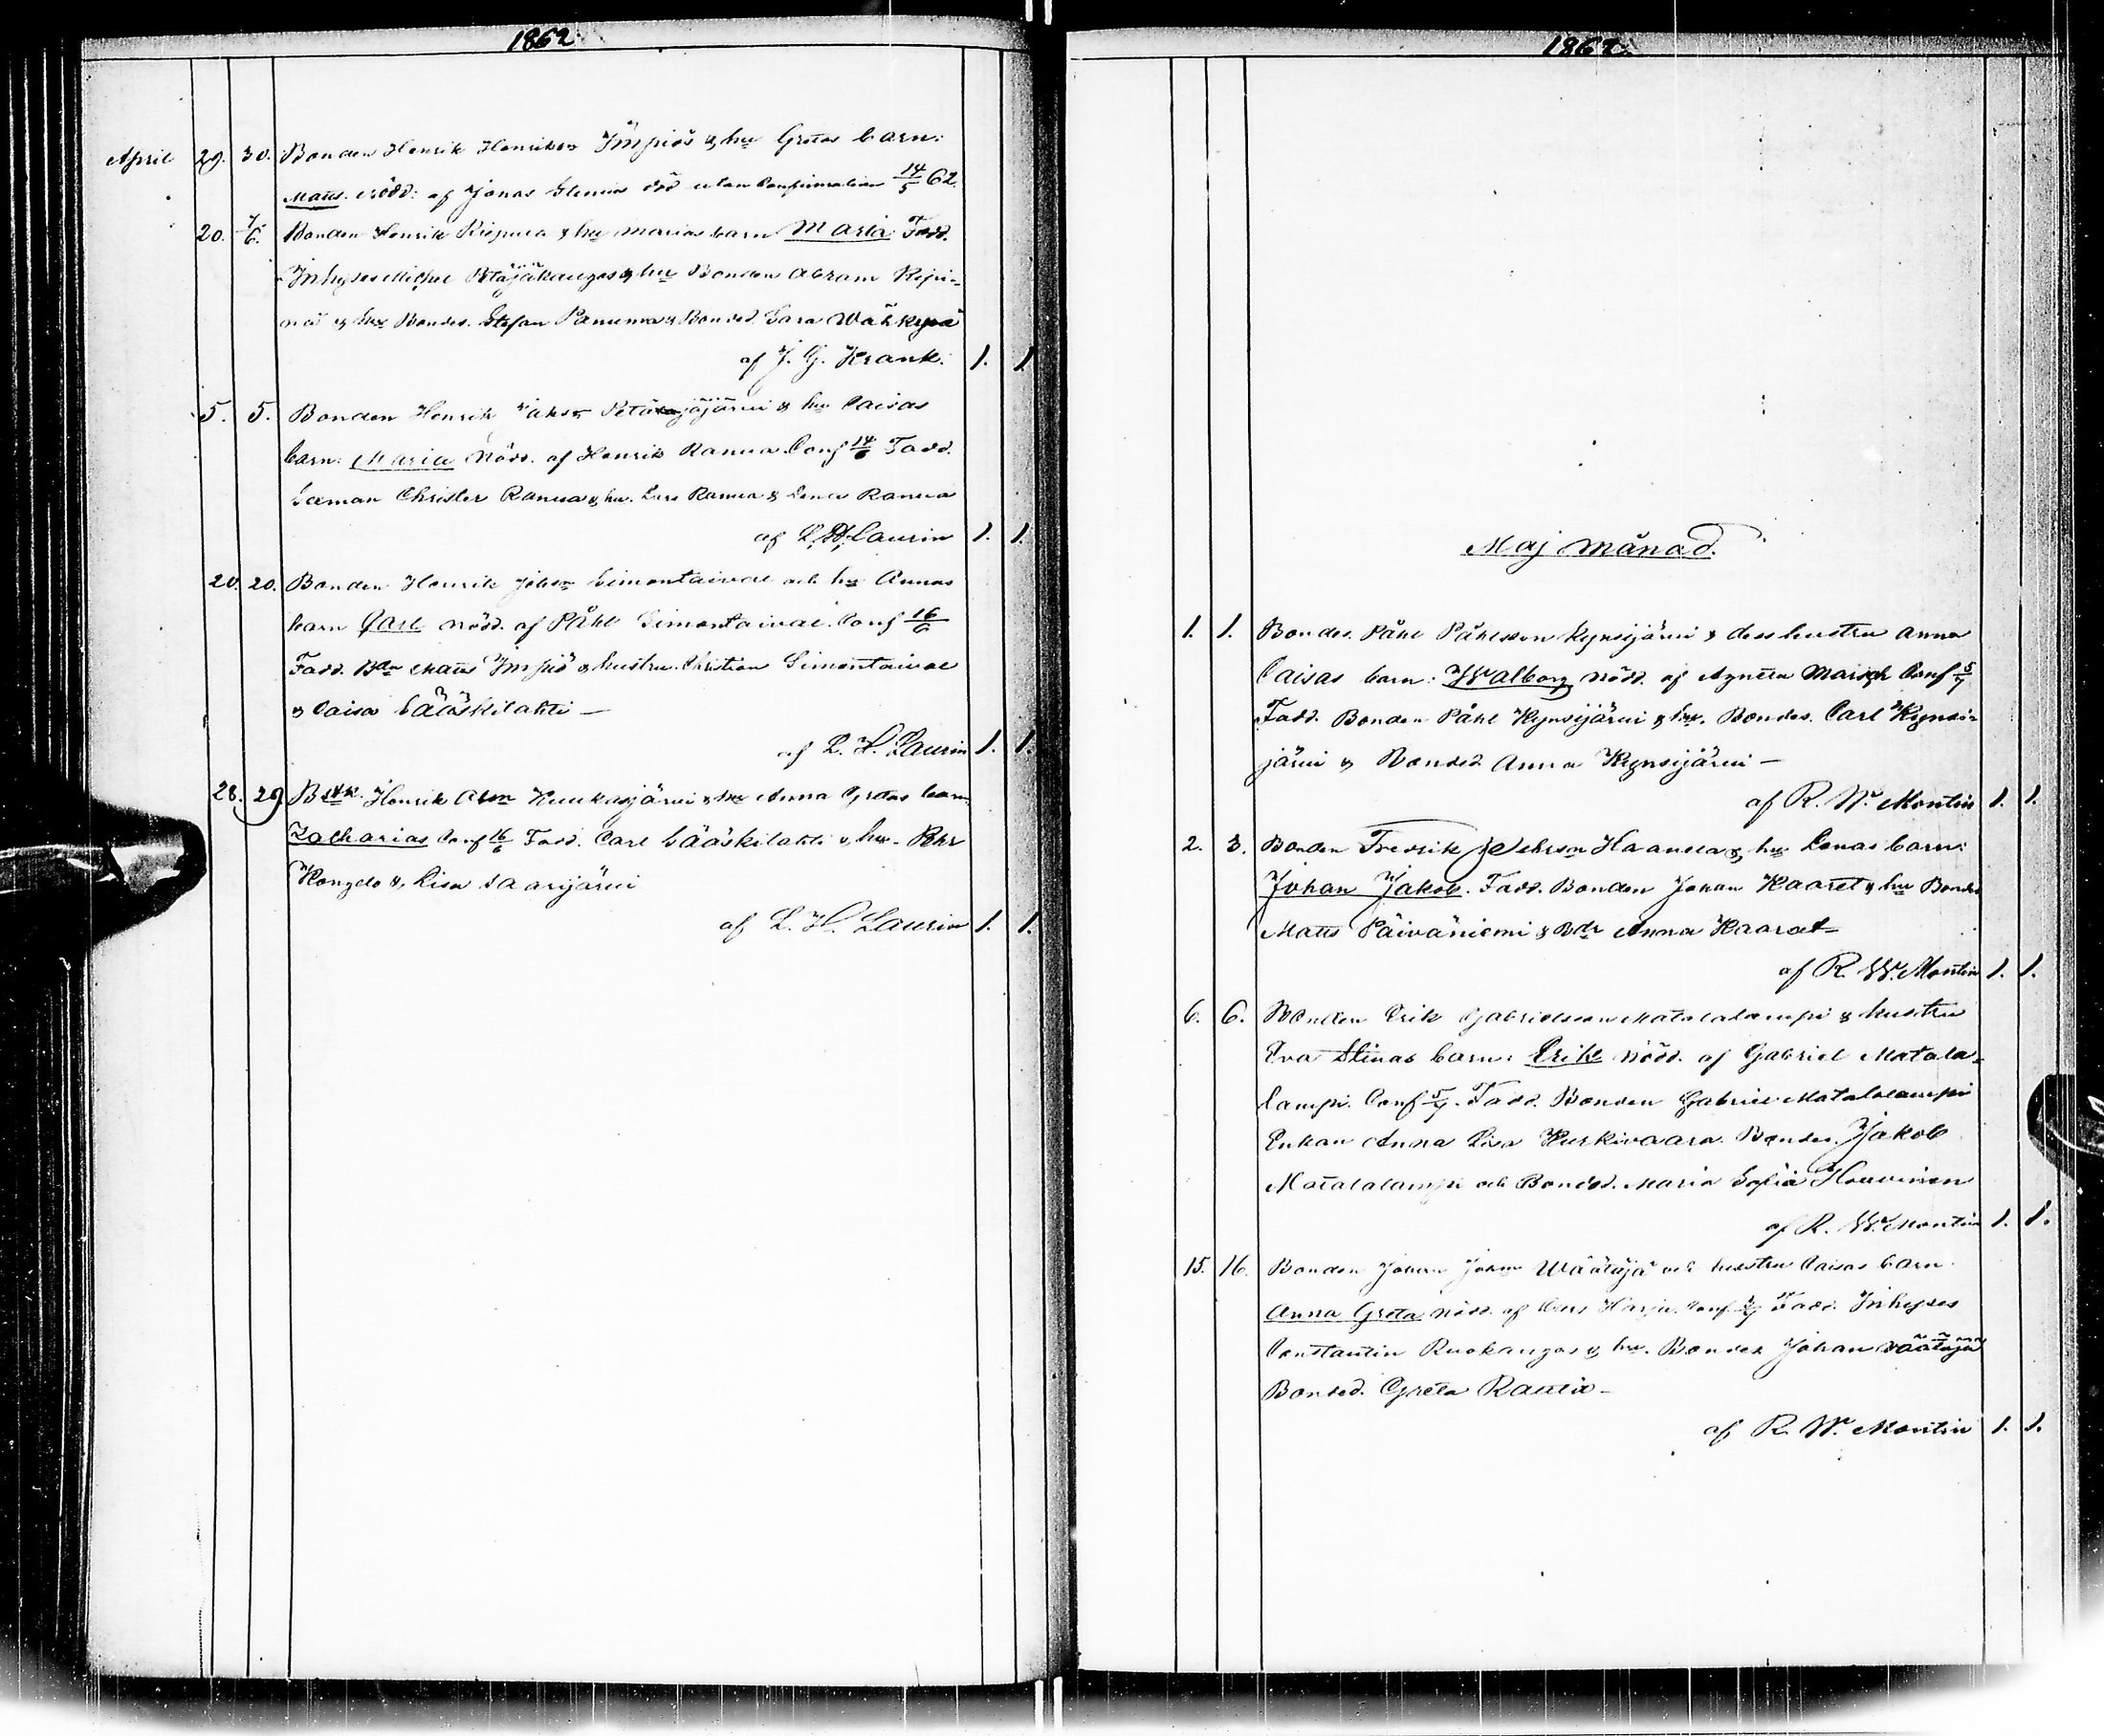 1862
April 29. 30. Bonden Henrik Henrikss Impiös & hu Gretas barn:
Matts. nödd: af Jonas död utan Confirmation 14/5 62.
20. 7/6. Bonden Henrik & hu Marias barn Maria Fadd.
Inhyses Michel Petäjäkangas & hu Bonden Abram
& hu Bondes. Stefan Panuma & Bondd. Sara Wähkyrä
af J. G. Krank. 1. 1
5. 5. Bonden Henrik & hu Caisas
barn: Maria nödd. af Henrik Ranua Conf 14/6 Fadd.
Christer Ranua & hu. Lars Ranua & Lena Ranua
af L. H. Laurin 1. 1.
20. 20. Bonden Henrik Johsn Simontaival och hu Annas
barn Carl nödd. af Påhl Simontaival. Conf 16/6
Fadd. Bdn Matts Impiö & hustru. Christian Simontaival
& Caisa Sääskilahti —
af L. H. Laurin 1. 1.
28. 29 Henrik Absn Kuukasjärvi & hu Anna Gretas barn
Zacharias Conf 16/6 Fadd. Carl Sääskilahti & hu. Pehr
Kongelo & Lisa Saarijärvi
af L. H. Laurin 1. 1.
1862.
Maj Månad.
1. 1. Bondes. Påhl Påhlsson Kynsijärvi & dess hustru Anna
Caisas barn: Walborg nödd. af Agneta Conf 5/7
Fadd. Bonden Påhl Kynsijärvi & hu. Bondes. Carl Kynsi-
järvi & Bonded Anna Kynsijärvi —
af R. W. Montin 1. 1.
2. 3. Bonden Fredrik Pehrsn & hu Lenas barn:
Johan Jakob. Fadd. Bonden Johan Kaaret & hu Bondes
Matts Päiväniemi & Bdr Anna Kaarat
af R. W. Montin 1. 1.
6. 6. Bonden Erik Gabrielsson Matalalampi & hustru
Eva Stinas barn: Erik nödd. af Gabriel Matala-
lampi. Conf 5/7. Fadd. Bonden Gabriel Matalalampi
Enkan Anna Lisa Kurkivaara. Bondes. Jakob
Matalalampi och Bondsd. Maria Sofia Houvinen
af R. W. Montin 1. 1.
15. 16. Bonden Johan Johsn Wäätäjä och hustru Caisas barn.
Anna Greta nödd. af Lars Harju. Conf Fadd. Inhyses
Constantin Ruokangas & hu. Bondes Johan Wäätäjä
Bondsd. Greta Rautio —
af R. W. Montin 1. 1.